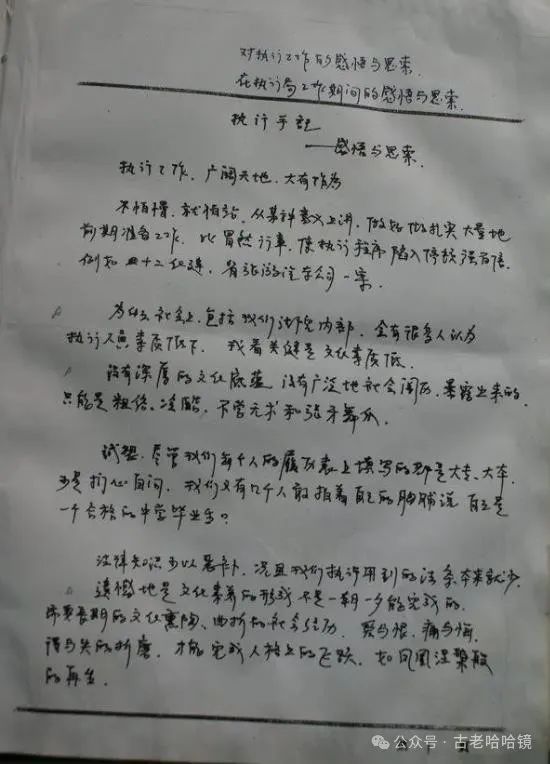 对执行工作的感悟与思索.
在执行局工作期间的感悟与思索.
执行手记
——感悟与思索.
执行工作、广阔天地、大有作为
不怕慢、就怕站、从某种意义上讲，做好做扎实大量地
前期准备工作，比冒然行事，使执行程序陷入停顿强百倍.
例如 四十二红建，省旅游汽车公司一案.
为什么社会上，包括我们法院内部，会有很多人认为
执行人员素质低下. 我看关键是文化素质低.
没有深厚的文化底蕴 没有广泛地社会阅历、暴露出来的
只能是粗俗、冷酷、不学无术和张牙舞爪.
试想，尽管我们每个人的履历表上填写的都是大专、大本，
可是扪心自问，我们又有几个人敢指着自己的胸脯说 自己是
一个合格的中学毕业生？
法律知识可以恶补，况且我们执行用到的法条本来就少.
遗憾地是文化素养的形成不是一朝一夕能完成的.
需要长期的文化熏陶、曲折的社会经历、爱与恨，痛与悔，
得与失的折磨，才能完成人格上的飞跃，如凤凰涅槃般
的再生.
公众号·古老哈哈镜